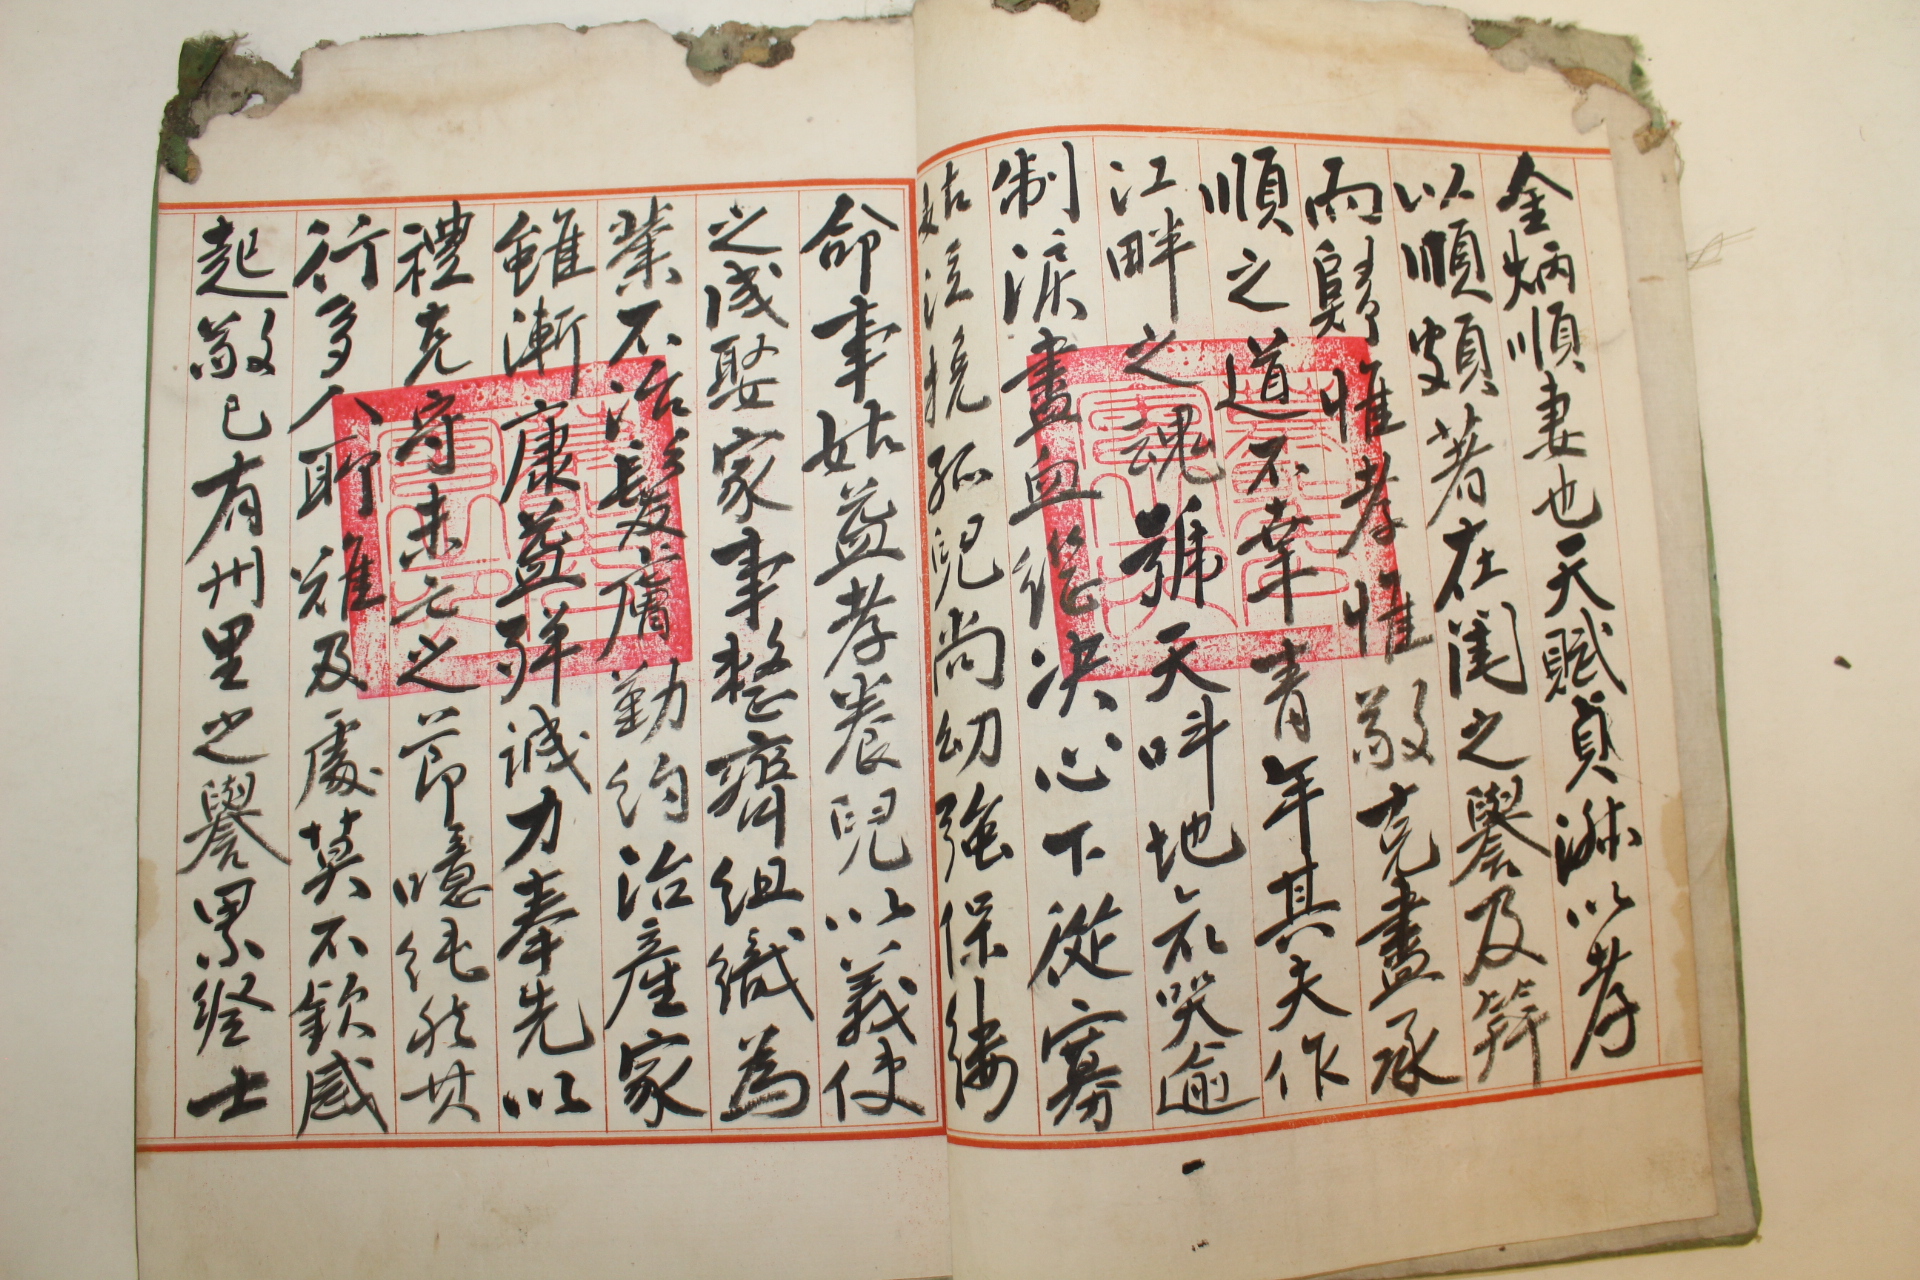 金炳順妻也天賦貞淑以孝
以順頗著在閨之譽及笄
而歸惟孝惟敬克盡承
順之道不幸青年其夫作
江畔之魂號天叫地哀哭逾
制淚盡血繼决心下從寡
姑泣挽孤兒尚幼強保縷
命事姑益孝養兒以義使
之成娶家事整齊組織為
業不治髮膚勤約治產家
雖漸康益殫誠力奉先以
禮克守未亡之節噫純然其
行多人所難及處莫不欽感
起敬已有州里之譽累經士